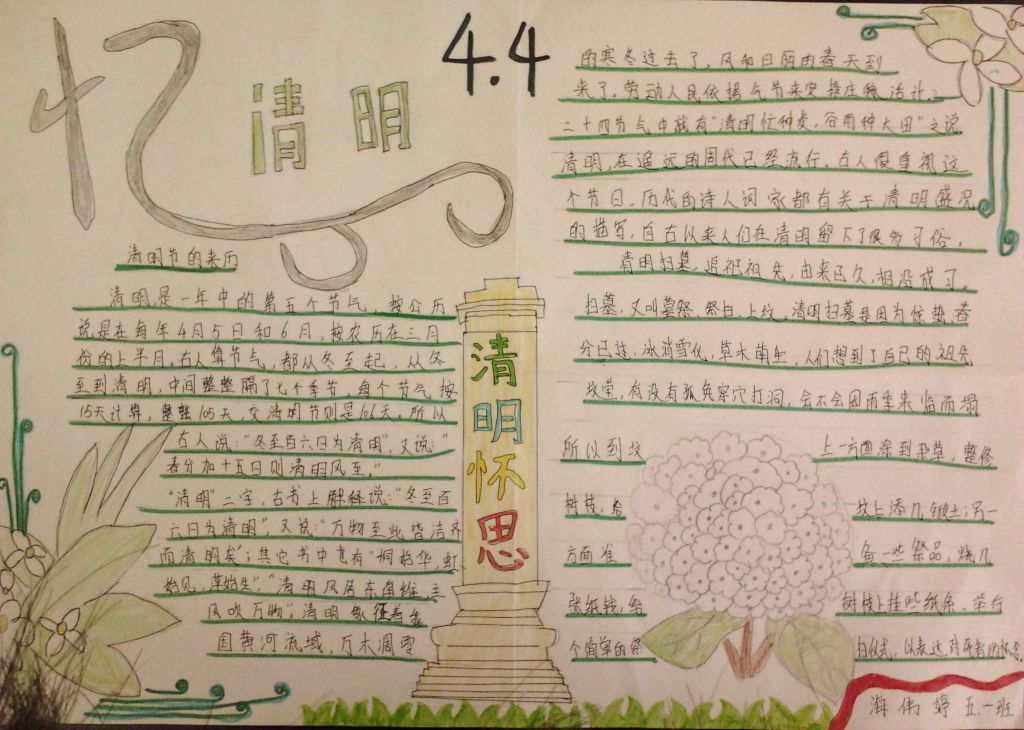 忆
清明
4.4
清明节的来历
清明,是一年中的第五个节气,按公历
说是在每年4月5日和6月,按农历在三月
份的上半月。古人算节气,都从冬至起,从冬
至到清明,中间整整隔了七个季节,每个节气按
15天计算,整整105天,交清明节则是106天。所以
古人说:“冬至百六日为清明”,又说:“
春分加十五日则清明风至。”
“清明”二字,古书上解释说:“冬至百
六日为清明”,又说:“万物至此皆洁齐
而清明矣”;其它书中有“桐始华,虹
始见,萍始生”,“清明风居东南维,主
风吹万物”;清明象征着
因黄河流域,万木凋零
清明怀思
的寒冬过去了,风和日丽的春天到
来了。劳动人民依据气节来安排庄稼活计。
二十四节气中就有“清明忙种麦,谷雨种大田”之说
清明,在遥远的周代已经流行,古人很重视这
个节日,历代的诗人词家都有关于清明盛况
的描写,自古以来人们在清明留下了很多习俗。
清明扫墓,追祀祖先,由来已久,相沿成习。
扫墓,又叫墓祭、祭扫、上坟。清明扫墓是因为惊蛰、春
分已过,冰消雪化,草木萌生,人们想到了自己的祖先
坟茔,有没有狐兔穿穴打洞,会不会因雨季来临而塌
所以到坟 上一方面除到杂草,整修
树枝,给 坟上添几锹土;另一
方面准 备一些祭品,烧几
张纸钱,给 树枝上挂些纸条,举行
个简单的祭 扫仪式,以表达对死者的怀念。
海伟婷 五.一班